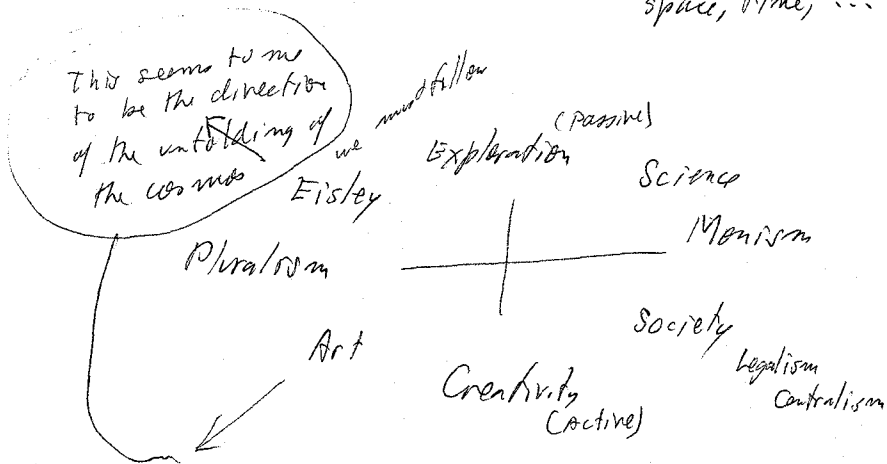 space, time, ...
This seems to me
to be the direction
of the unfolding of
the cosmos
we must follow
Eisley
Exploration
(Passive)
Science
Pluralism
Monism
Art
Society
Legalism
Centralism
Creativity
(Active)